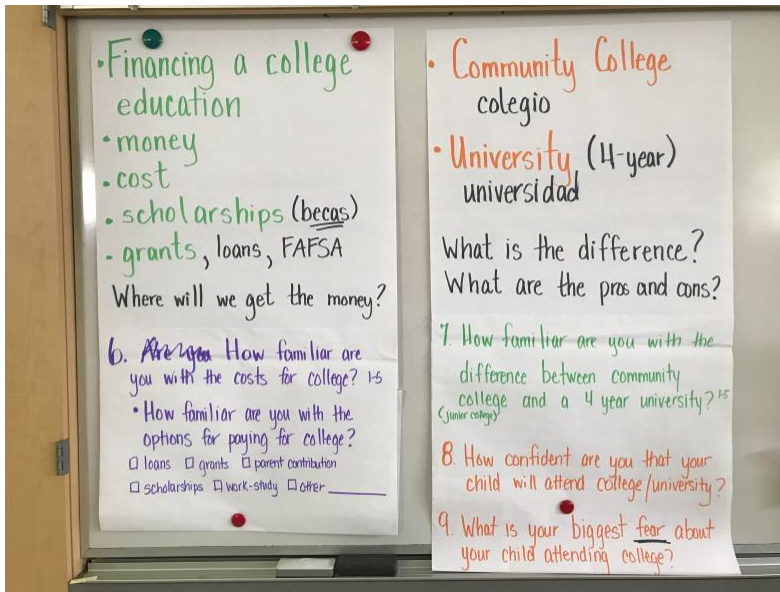 • Financing a college
education
• money
• cost
• scholarships (becas)
- grants, loans, FAFSA
Where will we get the money?
6. Are you How familiar are
you with the costs for college? 1-5
• How familiar are you with the
options for paying for college?
☐ loans ☐ grants ☐ parent contribution
☐ scholarships ☐ work-study ☐ other ________
• Community College
colegio
• University (4-year)
universidad
What is the difference?
What are the pros and cons?
7. How familiar are you with the
difference between community
college and a 4 year university? 1-5
(junior college)
8. How confident are you that your
child will attend college/university?
9. What is your biggest fear about
your child attending college?